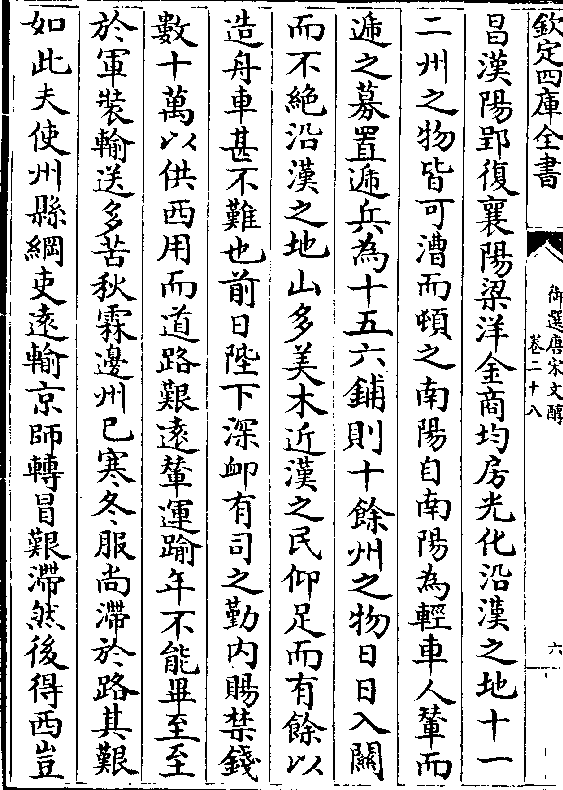 欽定四庫全書
御選唐宋文醇
卷二十八
六
昌漢陽郢復襄陽梁洋金商均房光化沿漢之地十一
二州之物皆可漕而頓之南陽自南陽為輕車人輦而
遞之募置遞兵為十五六鋪則十餘州之物日日入關
而不絶沿漢之地山多美木近漢之民仰足而有餘以
造舟車甚不難也前日陛下深卹有司之勤内賜禁錢
數十萬以供西用而道路艱遠輦運踰年不能畢至至
於軍裝輸送多苦秋霖邊州已寒冬服尚滯於路其艱
如此夫使州縣綱吏遠輸京師轉冒艱滯然後得西豈